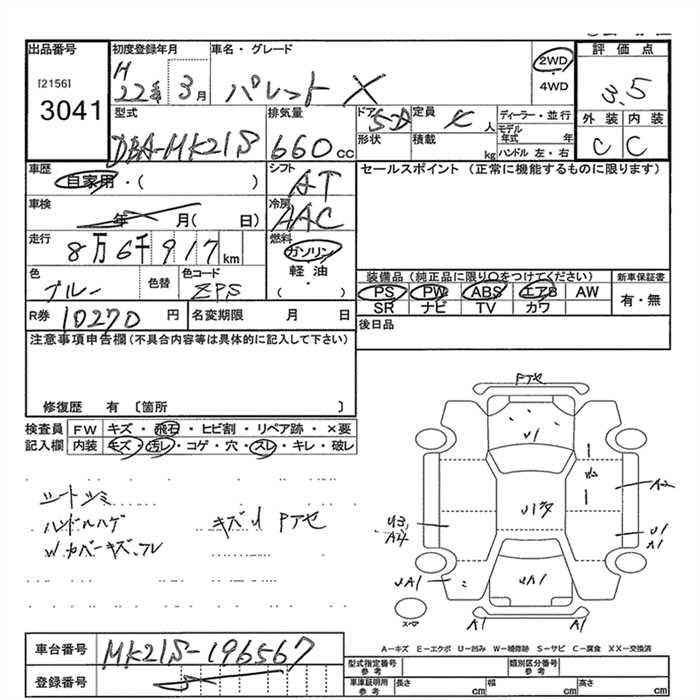 出品番号 初度登録年月 車名・グレード 2WD 評価点
[2156] H 22年 3月 パレット X ・4WD 3.5
3041 型式 排気量 ドア 5D 定員 人 ディーラー・並行 外装 内装
DBA-MK21S 660cc 形状 積載 kg モデル年式 年 C C
ハンドル 左・右
車歴 シフト セールスポイント (正常に機能するものに限ります)
自家用・( ) AT
車検 冷房
年 月( 日) AAC
走行 燃料
8万6千917km ガソリン
色 色替 色コード 軽油 装備品(純正品に限り○をつけてください) 新車保証書
ブルー ZPS ・( ) PS PW ABS エアB AW 有・無
R券 10270円 名変期限 月 日 SR ナビ TV カワ
注意事項申告欄(不具合内容等は具体的に記入して下さい) 後日品
修復歴 有 〔箇所 〕
検査員 FW キズ・飛石・ヒビ割・リペア跡・×要
記入欄 内装 キズ・汚レ・コゲ・穴・スレ・キレ・破レ
シートシミ
ハンドルハゲ キズU Pアセ
W.カバーキズ.フレ
Pアセ
U1
W2
A2
U3
A4
U1
A1
UA1
UA1
A1
A1
スペア
A-キズ E-エクボ U-凹み W-補修跡 S-サビ C-腐食 XX-交換済
車台番号 MK21S-196567
登録番号
型式指定番号 参考 類別区分番号 参考
車庫証明用 参考 長さ cm 幅 cm 高さ cm